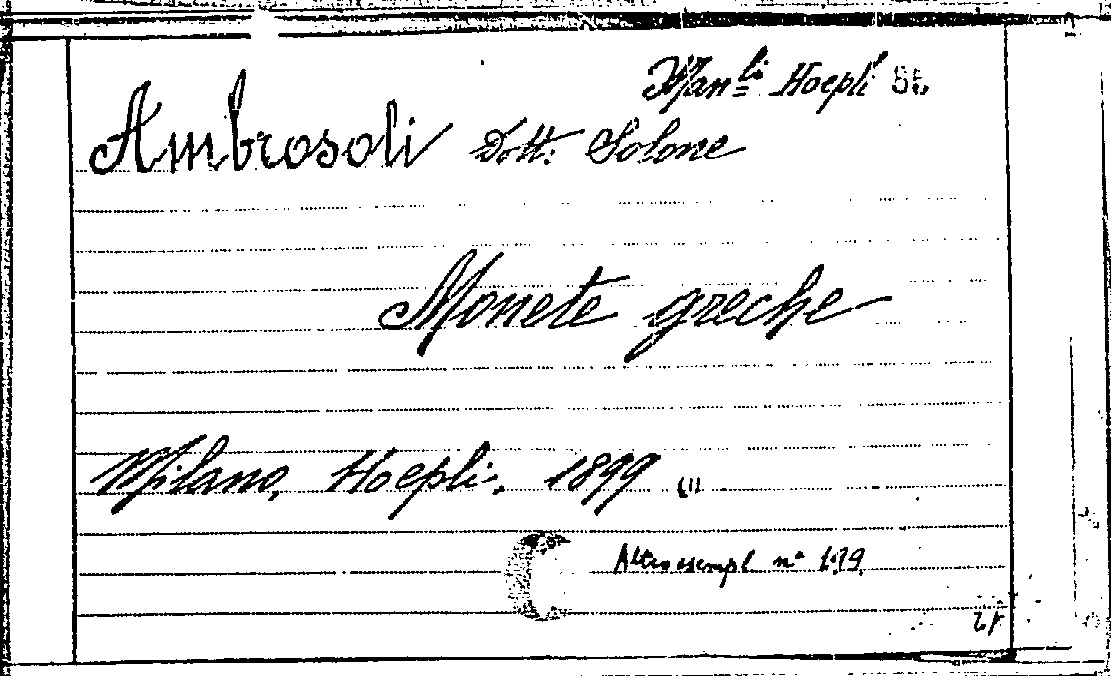 Man.li Hoepli
Ambrosoli Dott. Solone
Monete greche
Milano, Hoepli, 1899
Altro esempl. n° 179